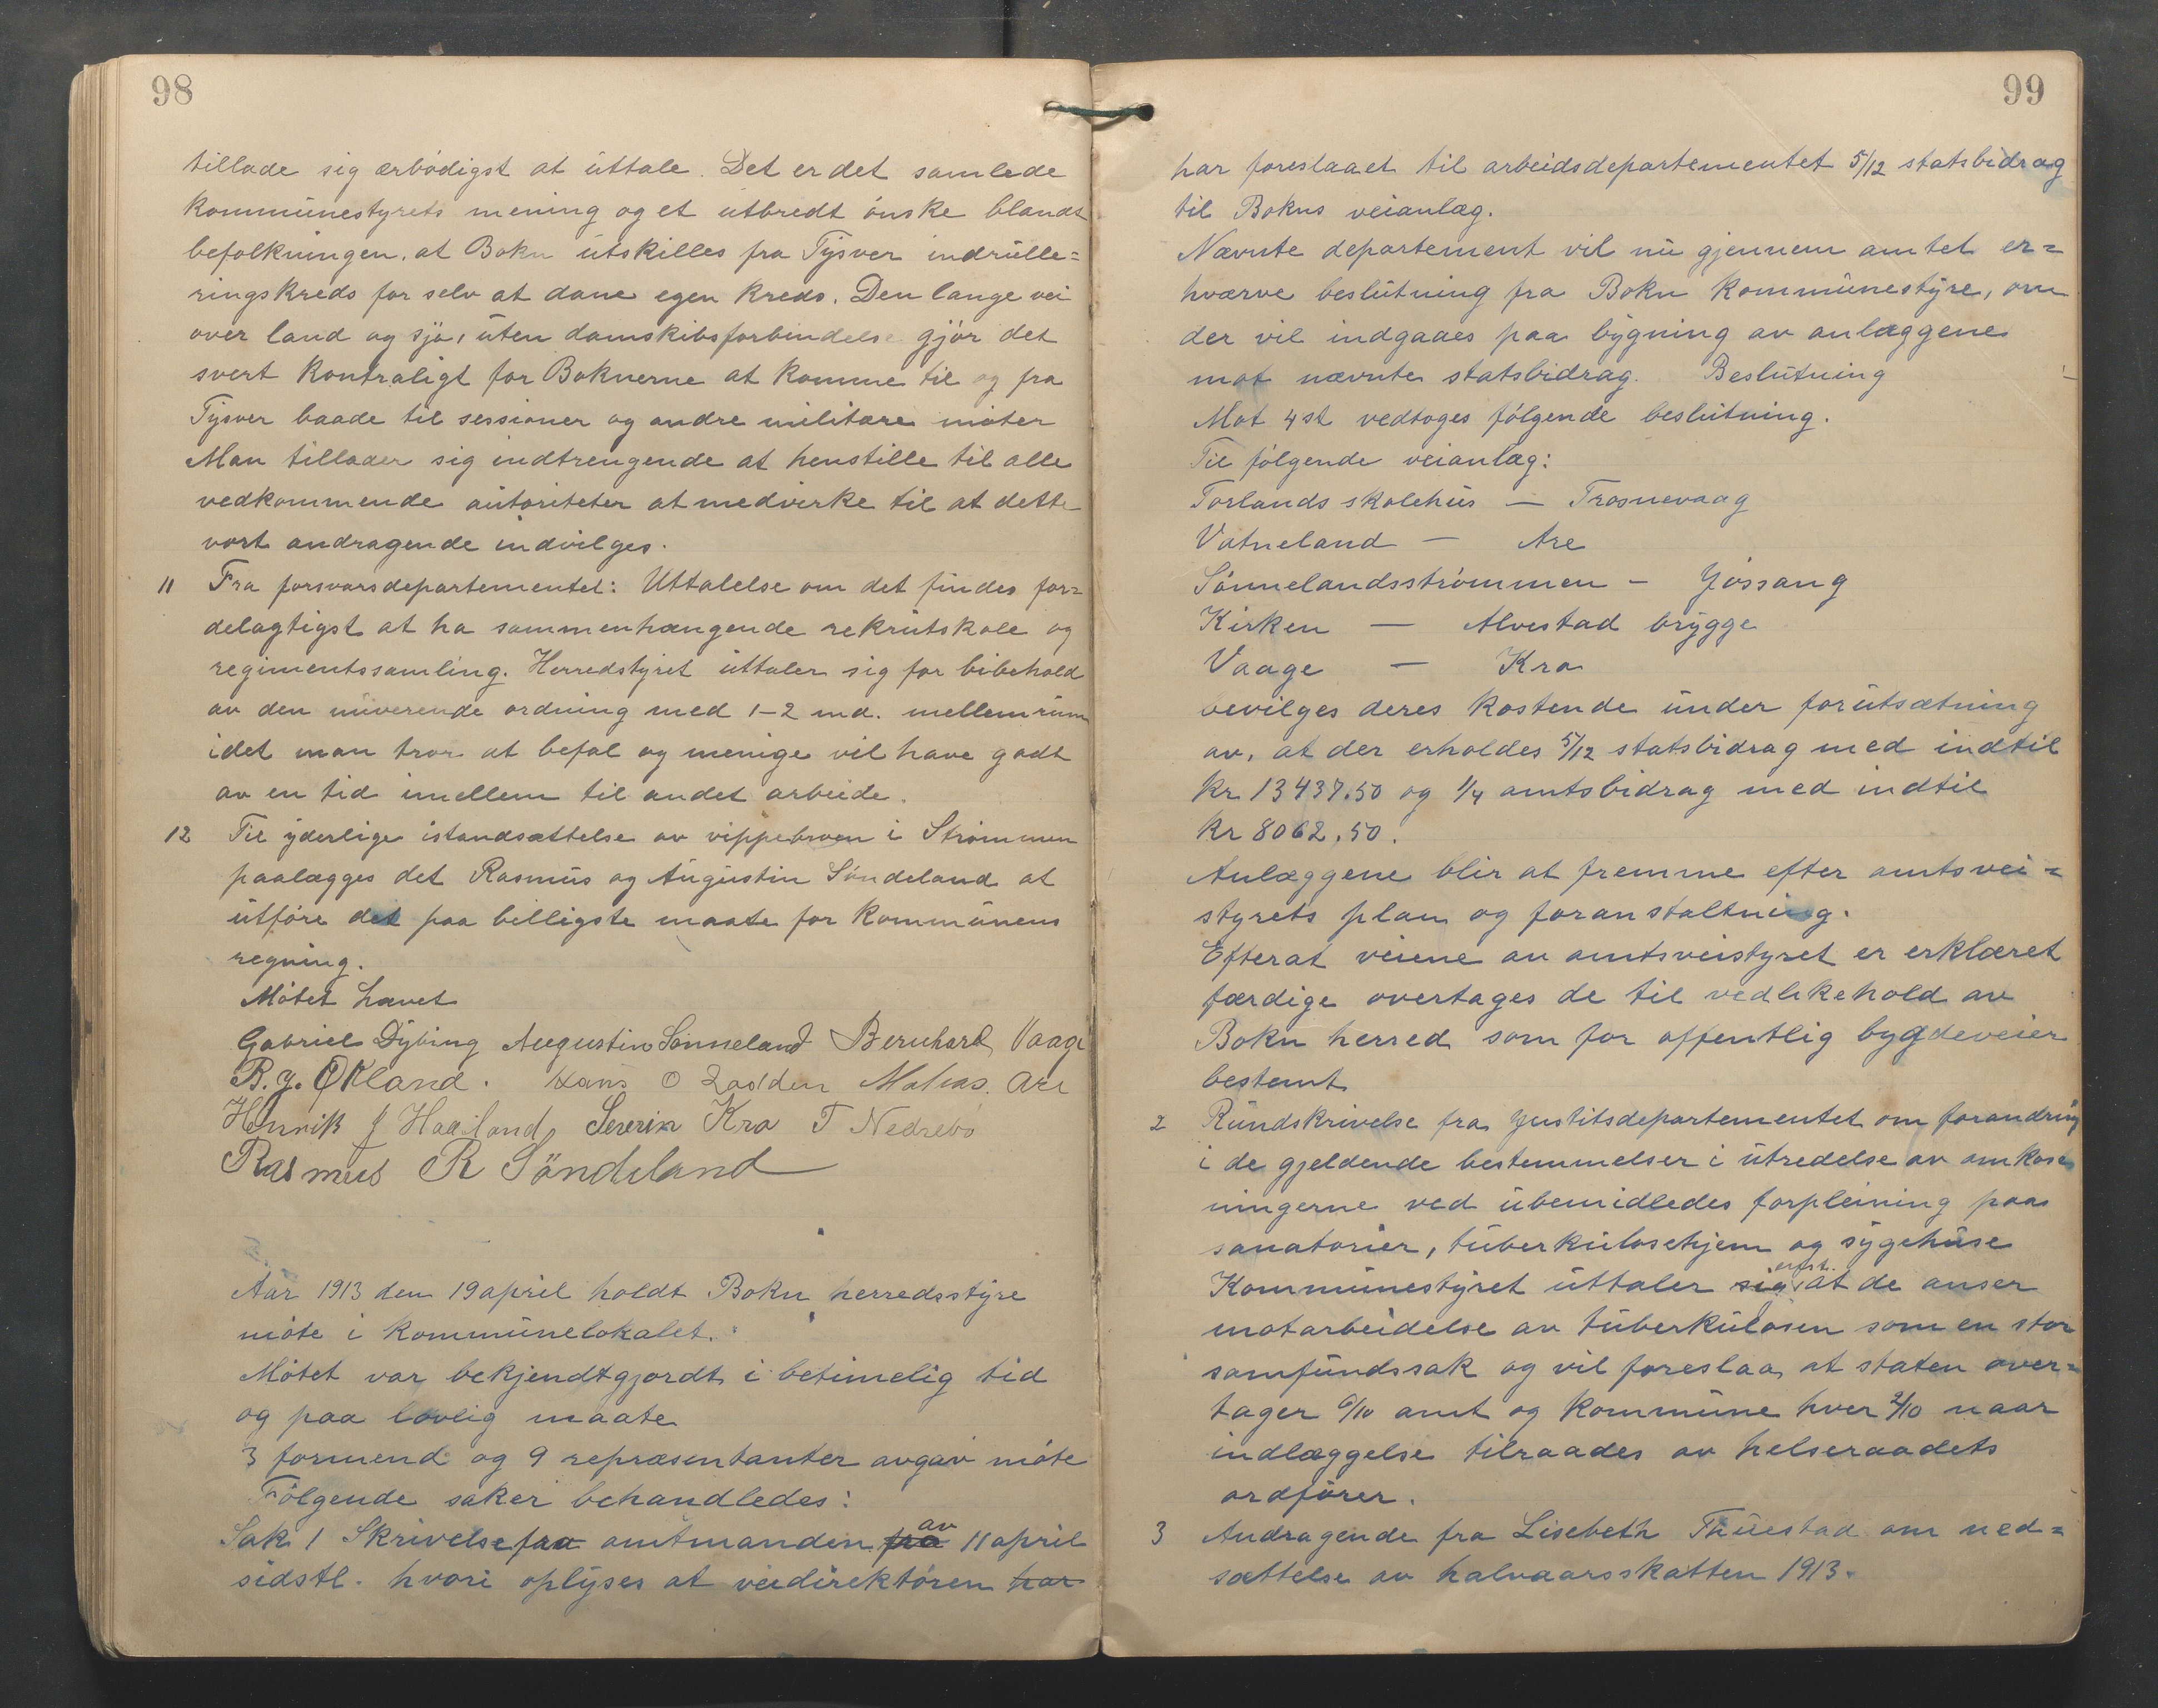 98
tillade sig ærbödigst at uttale. Det er det samlede
kommunestyrets mening og et utbredt önske blandt
befolkningen, at Bokn utskilles fra Tysver indrulle=
ringskreds for selv at dane egen kreds. Den lange vei
over land og sjö, uten damskibsforbindelse gjör det
svert kontraligt for Boknerne at komme til og fra
Tysver baade til sessioner og andre militære möter
Man tillader sig indtrengende at henstille til alle
vedkommende autoriteter at medvirke til at dette
vort andragende indvilges.
11 Fra forsvarsdepartementet: Uttalelse om det findes for=
delagtigst at ha sammenhængende rekrutskole og
regimentssamling. Herredstyret uttaler sig for bibehold
av den nuverende ordning med 1-2 md. mellemrum
idet man tror at befal og menige vil have godt
av en tid imellem til andet arbeide.
12 Til yderlige istandsættelse av vippebroen i Strömmen
paalægges det Rasmus og Augustin Söndeland at
utföre det paa billigste maate for kommunens
regning.
Mötet hævet
Gabriel Dybing Augustin Sönneland Bernhard Vaage
B. J. Økland. Hans O Lodden Matias Are
Henrik J Haaland, Severin Kro T Nedrebö
Rasmus R Söndeland
Aar 1913 den 19 april holdt Bokn herredsstyre
möte i kommunelokalet.
Mötet var bekjendtgjordt i betimelig tid
og paa lovlig maate
3 formend og 9 repræsentanter avgav möte
Fölgende saker behandledes:
Sak 1 Skrivelse fra amtmanden fra av 11 april
sidstl. hvori oplyses at veidirektören har
99
har foreslaaet til arbeidsdepartementet 5/12 statsbidrag
til Bokns veianlæg.
Nævnte departement vil nu gjennem amtet er=
hværve beslutning fra Bokn kommunestyre, om
der vil indgaaes paa bygning av anlæggene
mot nævnte statsbidrag. Beslutning
Mot 4 st vedtoges fölgende beslutning.
Til fölgende veianlæg:
Torlands skolehus — Trosnevaag
Vatneland — Are
Sönnelandsströmmen — Jössang
Kirken — Alvestad brygge
Vaage — Kro
bevilges deres kostende under forutsætning
av, at der erholdes 5/12 statsbidrag med indtil
kr 13437.50 og 1/4 amtsbidrag med indtil
kr 8062.50.
Anlæggene blir at fremme efter amtsvei=
styrets plan og foranstaltning.
Efterat veiene av amtsveistyret er erklæret
færdige overtages de til vedlikehold av
Bokn herred som for offentlig bygdeveier
bestemt
2 Rundskrivelse fra Justitsdepartementet om forandring
i de gjeldende bestemmelser i utredelse av omkost
ningerne ved ubemidledes forpleining paa
sanatorier, tuberkulosehjem og sygehuse
Kommunestyret uttaler sig enst. at de anser
motarbeidelse av tuberkulosen som en stor
samfundssak og vil foreslaa, at staten over=
tager 6/10 amt og kommune hver 2/10 naar
indlæggelse tilraades av helseraadets
ordförer.
3 Andragende fra Lisebeth Thuestad om ned=
sættelse av halvaarsskatten 1913.